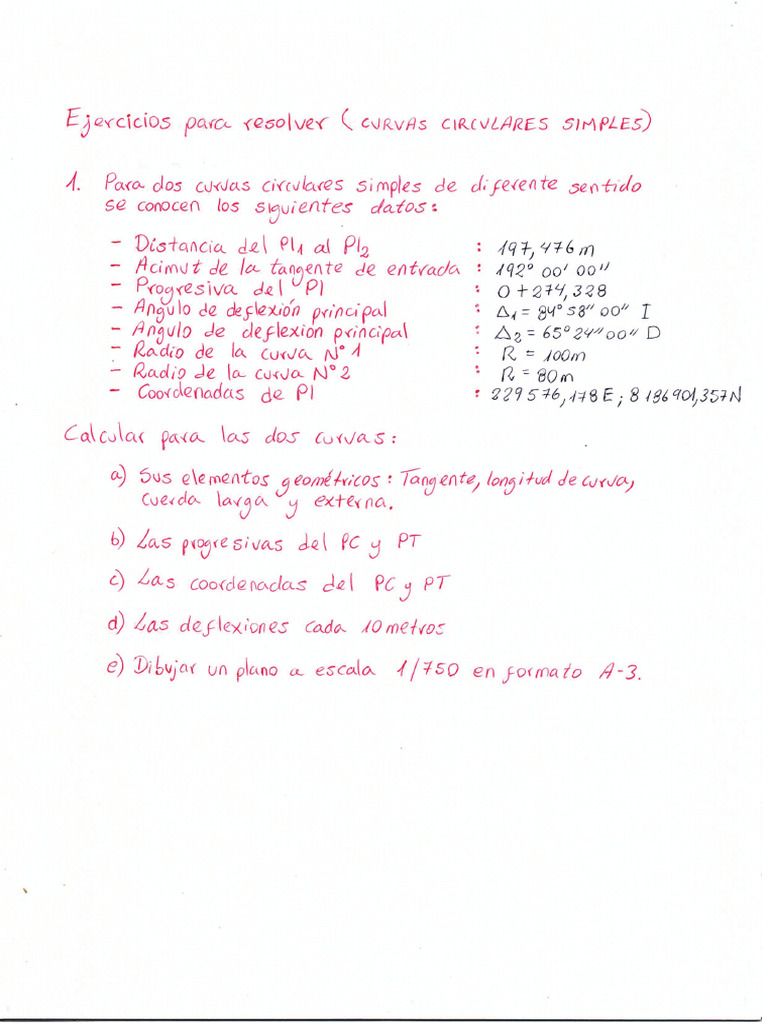 Ejercicios para resolver (CURVAS CIRCULARES SIMPLES)
1. Para dos curvas circulares simples de diferente sentido
se conocen los siguientes datos:
- Distancia del PI1 al PI2 : 197,476 m
- Acimut de la tangente de entrada : 192° 00' 00"
- Progresiva del PI : 0+274,328
- Angulo de deflexión principal : Δ1 = 84° 58" 00" I
- Angulo de deflexión principal : Δ2 = 65° 24" 00" D
- Radio de la curva N° 1 : R = 100m
- Radio de la curva N° 2 : R = 80m
- Coordenadas de PI : 229 576,178 E ; 8 186 901,357 N
Calcular para las dos curvas:
a) Sus elementos geométricos: Tangente, longitud de curva,
cuerda larga y externa.
b) Las progresivas del PC y PT
c) Las coordenadas del PC y PT
d) Las deflexiones cada 10 metros
e) Dibujar un plano a escala 1/750 en formato A-3.